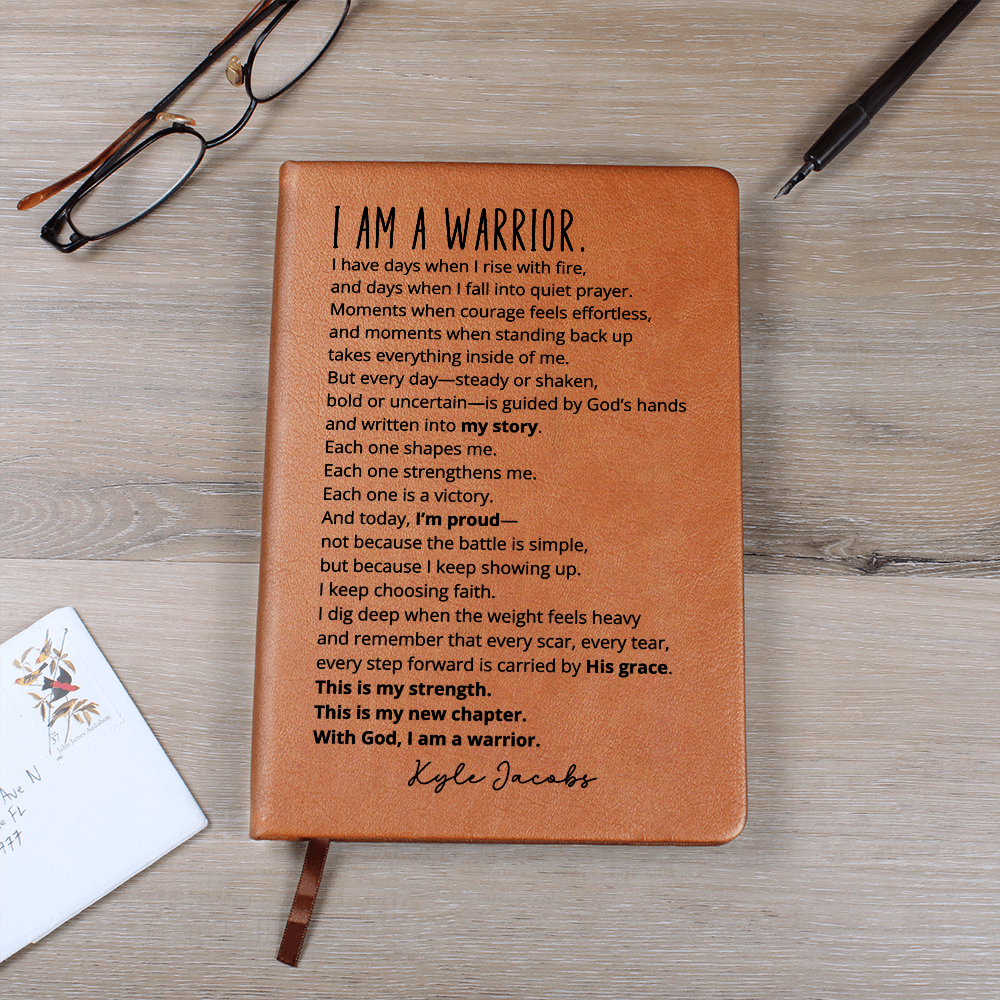 I AM A WARRIOR.
I have days when I rise with fire,
and days when I fall into quiet prayer.
Moments when courage feels effortless,
and moments when standing back up
takes everything inside of me.
But every day—steady or shaken,
bold or uncertain—is guided by God's hands
and written into my story.
Each one shapes me.
Each one strengthens me.
Each one is a victory.
And today, I'm proud—
not because the battle is simple,
but because I keep showing up.
I keep choosing faith.
I dig deep when the weight feels heavy
and remember that every scar, every tear,
every step forward is carried by His grace.
This is my strength.
This is my new chapter.
With God, I am a warrior.
Kyle Jacobs
37
John James Audubon
Ave N
FL
777